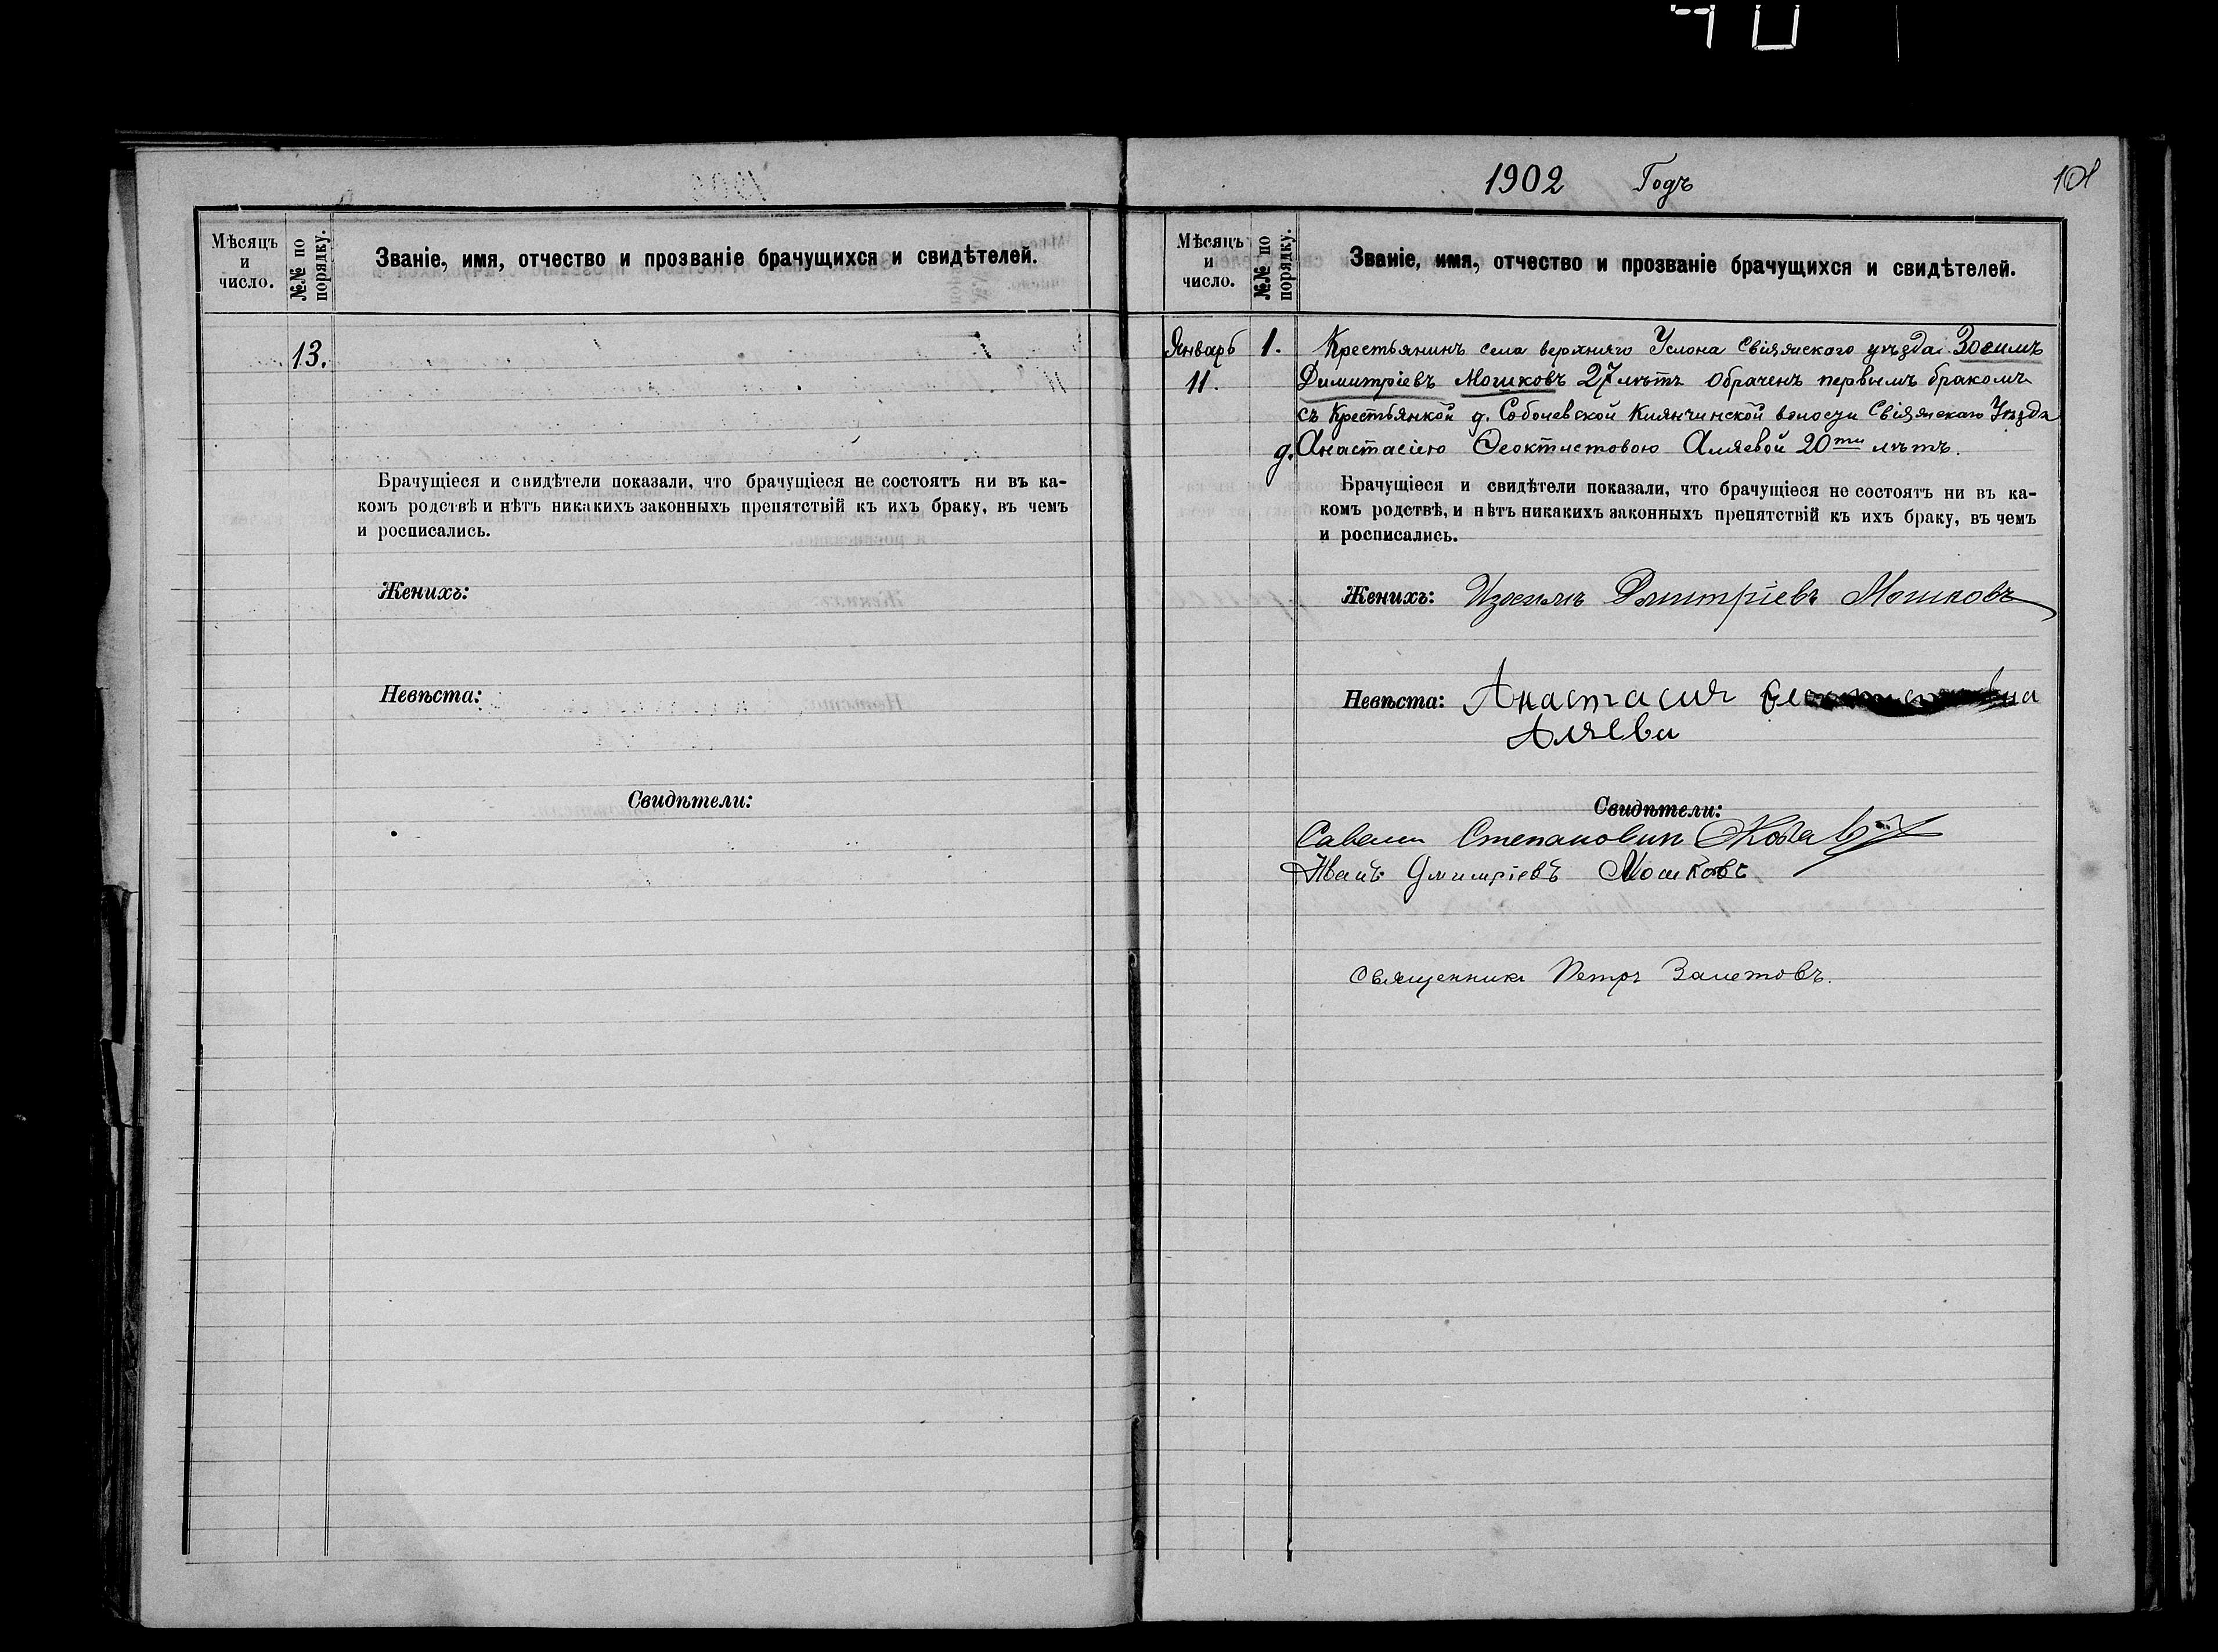 Мѣсяцъ и число.
№№ по порядку.
Званіе, имя, отчество и прозваніе брачущихся и свидѣтелей.
13.
Брачущіеся и свидѣтели показали, что брачущіеся не состоятъ ни въ ка-
комъ родствѣ и нѣтъ никакихъ законныхъ препятствій къ ихъ браку, въ чемъ
и росписались.
Женихъ:
Невѣста:
Свидѣтели:
1902 Годъ
101
Мѣсяцъ и число.
№№ по порядку.
Званіе, имя, отчество и прозваніе брачущихся и свидѣтелей.
Январь 1. Крестьянинъ села верхняго Услона Свіяжскаго уѣзда Зосимъ
11. Димитріевъ Мошковъ 27 лѣтъ обраченъ первымъ бракомъ
съ Крестьянкой д. Соболевской Клянчинской волости Свіяжскаго Уѣзда
д. Анастасіею Ѳеоктистовою Аляевой 20ти лѣтъ.
Брачущіеся и свидѣтели показали, что брачущіеся не состоятъ ни въ ка-
комъ родствѣ, и нѣтъ никакихъ законныхъ препятствій къ ихъ браку, въ чемъ
и росписались.
Женихъ: Изосимъ Дмитріевъ Мошковъ
Невѣста: Анастасия
Аляева
Свидѣтели:
Степановин
Иванъ Дмитріевъ Мошковъ
Священникъ Петръ Залетовъ.